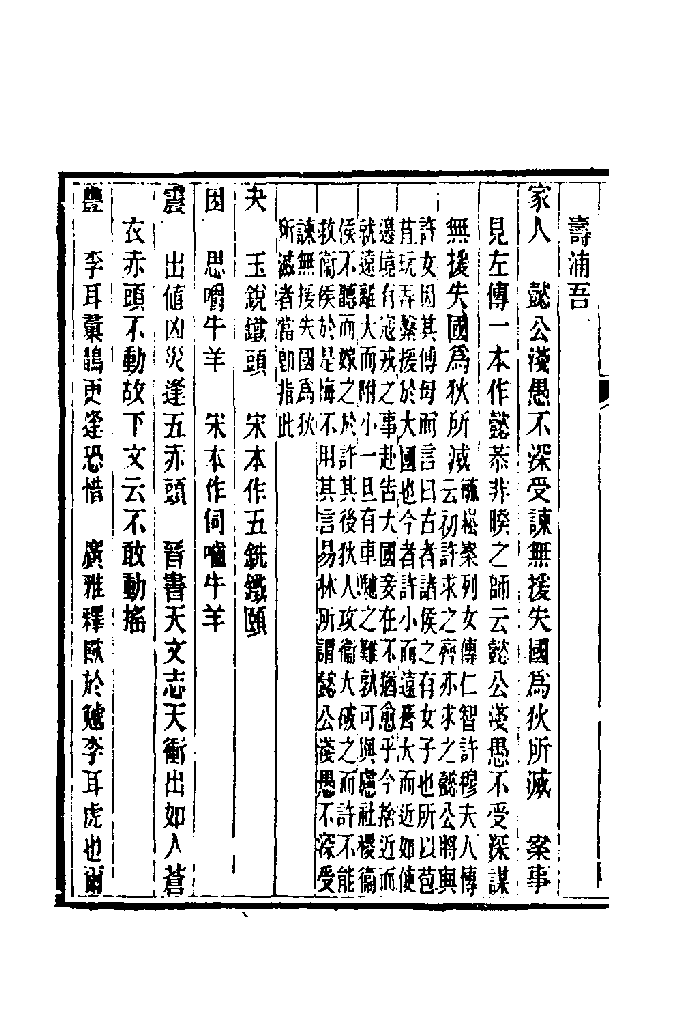 壽湳吾
家人　懿公淺愚不深受諫無援失國爲狄所滅　案事
見左傳一本作懿恭非睽之師云懿公淺愚不受深謀
無援失國爲狄所滅
疏崧案列女傳仁智許穆夫人傳
云初許求之齊亦求之懿公將與
許女因其傅母而言曰古者諸侯之有女子也所以苞
苴玩弄繫援於大國也今者許小而遠齊大而近如使
邊境有寇戎之事赴告大國妾在不猶愈乎今捨近而
就遠離大而附小一旦有車馳之難孰可與慮社稷衞
侯不聽而嫁之於許其後狄人攻衞大破之而許不能
救衞侯於是悔不用其言易林所謂懿公淺愚不深受
諫無援失國爲狄
所滅者當卽指此
夬　玉銳鐵頭　宋本作五銑鐵頤
困　思嚼牛羊　宋本作伺嚙牛羊
震　出値凶災逢五赤頭　晉書天文志天衝出如人蒼
衣赤頭不動故下文云不敢動搖
豐　李耳彙鵲更逢恐惜　廣雅釋獸於䖘李耳虎也爾